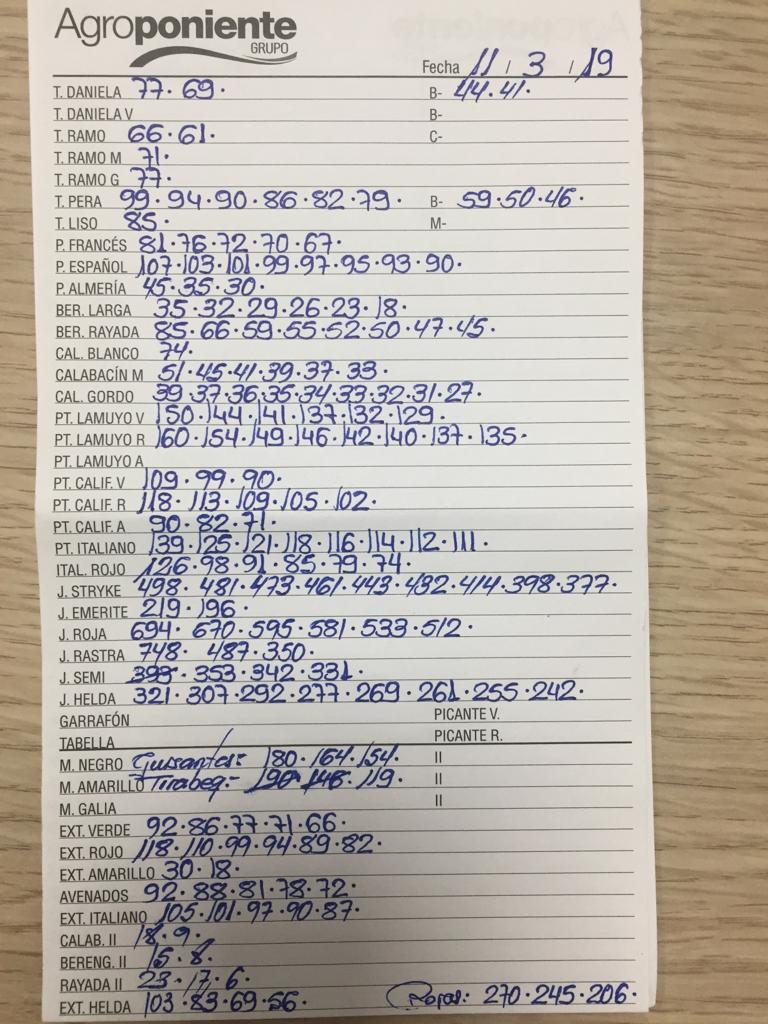 Agroponiente
GRUPO
Fecha 11 / 3 / 19
T. DANIELA 77. 69. B- 44. 41.
T. DANIELA V B-
T. RAMO 66. 61. C-
T. RAMO M 71.
T. RAMO G 77.
T. PERA 99. 94. 90. 86. 82. 79. B- 59. 50. 46.
T. LISO 85. M-
P. FRANCÉS 81. 76. 72. 70. 67.
P. ESPAÑOL 107. 103. 101. 99. 97. 95. 93. 90.
P. ALMERÍA 45. 35. 30.
BER. LARGA 35. 32. 29. 26. 23. 18.
BER. RAYADA 85. 66. 59. 55. 52. 50. 47. 45.
CAL. BLANCO 74.
CALABACÍN M 51. 45. 41. 39. 37. 33.
CAL. GORDO 39. 37. 36. 35. 34. 33. 32. 31. 27.
PT. LAMUYO V 150. 144. 141. 137. 132. 129.
PT. LAMUYO R 160. 154. 149. 146. 142. 140. 137. 135.
PT. LAMUYO A
PT. CALIF. V 109. 99. 90.
PT. CALIF. R 118. 113. 109. 105. 102.
PT. CALIF. A 90. 82. 71.
PT. ITALIANO 139. 125. 121. 118. 116. 114. 112. 111.
ITAL. ROJO 126. 98. 91. 85. 79. 74.
J. STRYKE 498. 481. 473. 461. 443. 432. 414. 398. 377.
J. EMERITE 219. 196.
J. ROJA 694. 670. 595. 581. 533. 512.
J. RASTRA 748. 487. 350.
J. SEMI 393. 353. 342. 331.
J. HELDA 321. 307. 292. 277. 269. 261. 255. 242.
GARRAFÓN PICANTE V.
TABELLA PICANTE R.
M. NEGRO Guisantes: 180. 164. 154. II
M. AMARILLO Tirabeq:- 190. 146. 119. II
M. GALIA II
EXT. VERDE 92. 86. 77. 71. 66.
EXT. ROJO 118. 110. 99. 94. 89. 82.
EXT. AMARILLO 30. 18.
AVENADOS 92. 88. 81. 78. 72.
EXT. ITALIANO 105. 101. 97. 90. 87.
CALAB. II 18. 9.
BERENG. II 15. 8.
RAYADA II 23. 17. 6.
EXT. HELDA 103. 83. 69. 56. Rojas: 270. 245. 206.